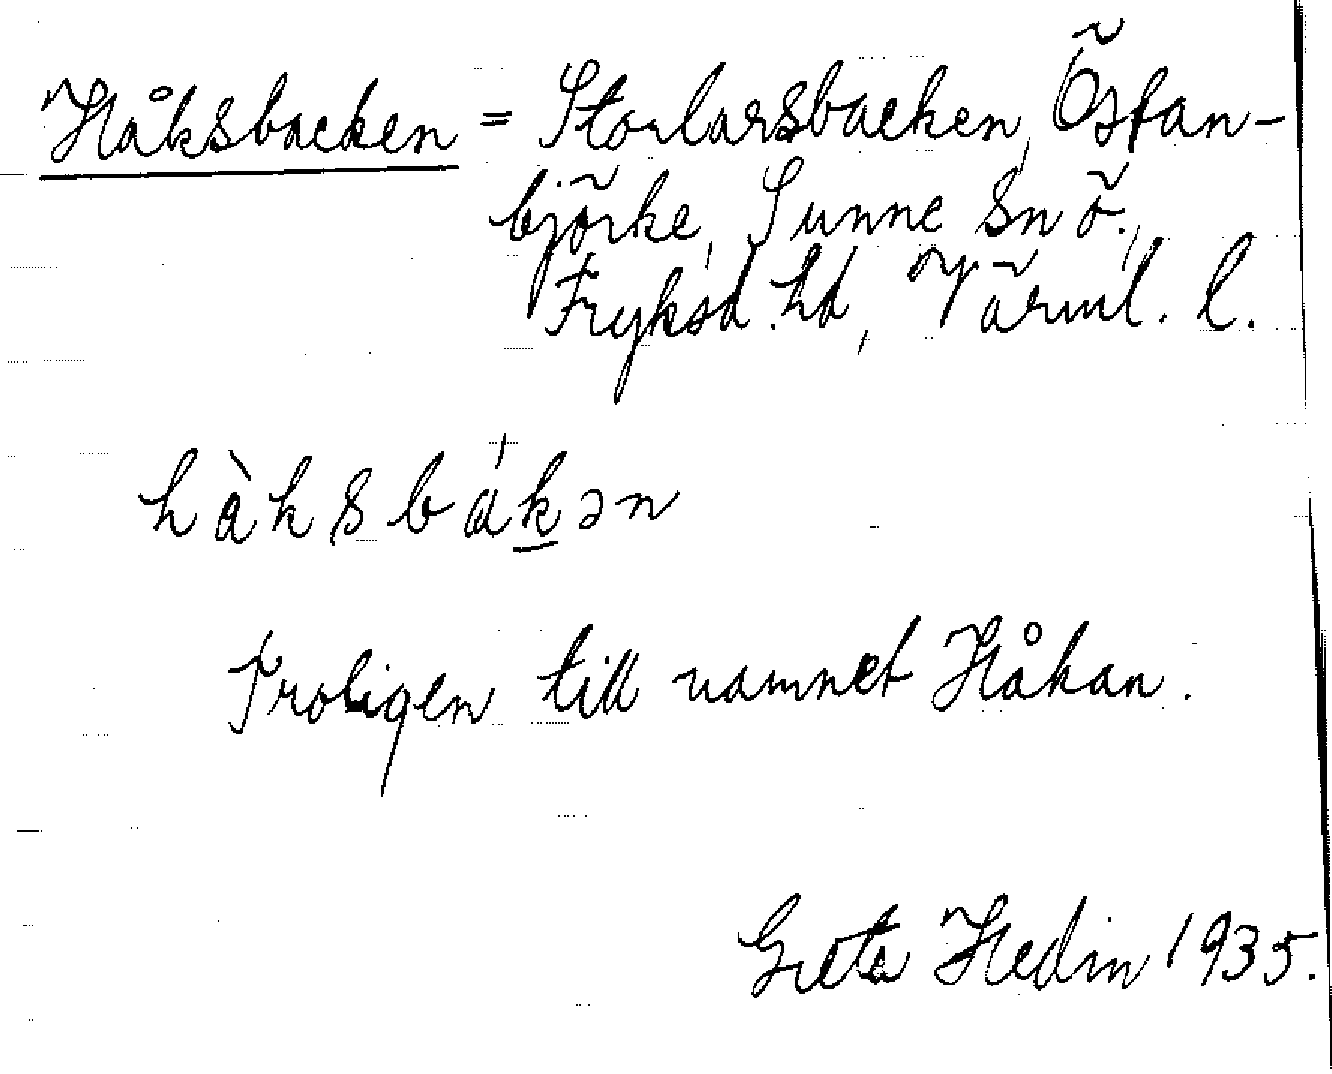 Håksbacken = Storlarsbacken, Östan-
björke, Sunne sn ö.,
Fryksd. hd, Värml. l.
hàksbákən
Troligen till namnet Håkan.
Greta Hedin 1935.